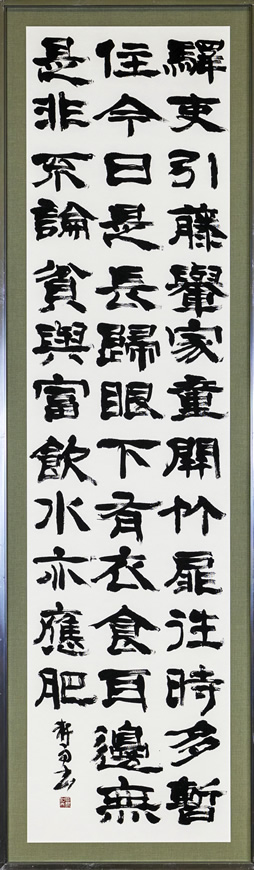 驛吏引藤轝家童開竹扉往時多暫
住今日是長歸眼下有衣食耳邊無
是非不論貧與富飲水亦應肥